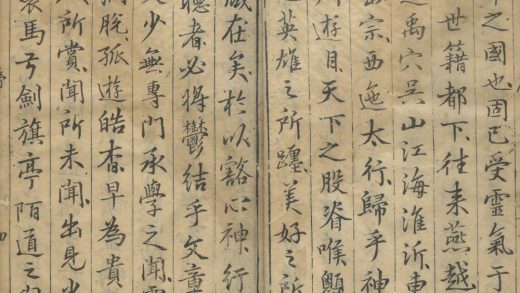 之國也固已受靈氣于
世籍都下往来燕越
禹穴吳山江海淮沂東
宗西迤太行歸乎神
遊目天下之股脊喉
英雄之所躔美好之所
咸在矣於以豁心神行
聽者必將鬱結乎文章
少無專門承學之聞
脫孤遊皓杳早為貴
所賞聞所未聞出見
裘馬弓劍旗亭陌道之